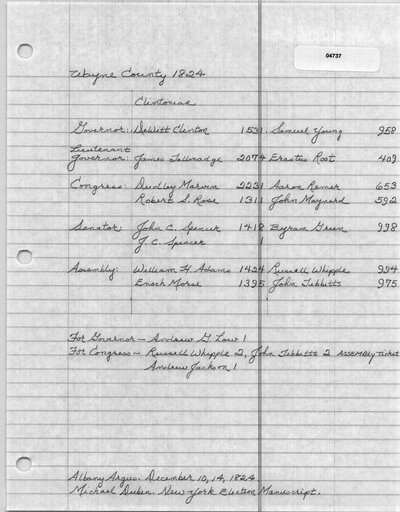 04737
Wayne County 1824
Clintonian
Governor: DeWitt Clinton 1531 Samuel Young 958
Lieutenant
Governor: James Tallmadge 2074 Erastus Root 409
Congress: Dudley Marvin 2231 Aaron Remer 653
Robert S. Rose 1311 John Maynard 592
Senator: John C. Spencer 1418 Byram Green 998
J.C. Spencer 1
Assembly: William H. Adams 1424 Russell Whipple 994
Enoch Morse 1395 John Tebbitts 975
For Governor - Andrew G. Low 1
For Congress - Russell Whipple 2, John Tebbitts 2 Assembly Ticket
Andrew Jackson 1
Albany Argus. December 10, 14, 1824.
Michael Dubin. New York Election Manuscript.